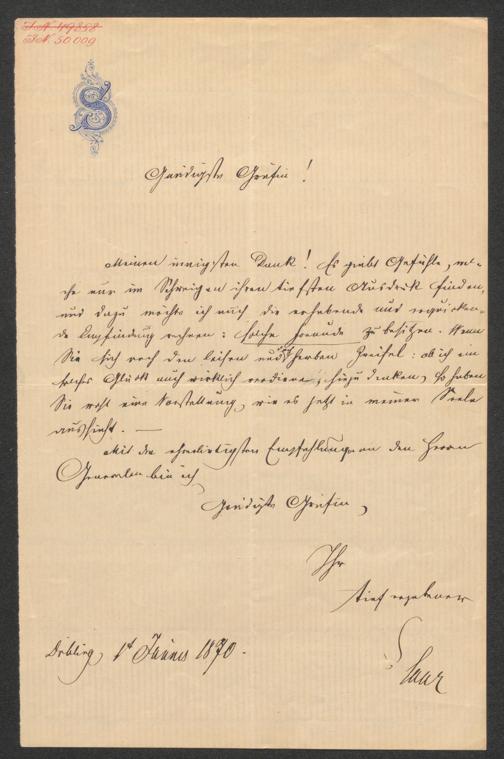 I.N. 49858
I.N. 50009
S
Gnädigste Gräfin!
Meinen innigsten Dank! Es giebt Gefühle, wel-
che nur im Schweigen ihren tiefsten Ausdruck finden,
und dazu möchte ich auch die erhebende und erquicken-
de Empfindung rechnen: solche Freunde zu besitzen. Wenn
Sie sich noch den leisen und herben Zweifel: ob ich ein
solches Glück auch wirklich verdiene, hiezu denken, so haben
Sie wohl eine Vorstellung, wie es jetzt in meiner Seele
aussieht. —
Mit den ehrerbietigsten Empfehlungen an den Herrn
Generalen bin ich
Gnädigste Gräfin,
Ihr
tief ergebener
Saar
Döbling, 1t Jänner 1870.